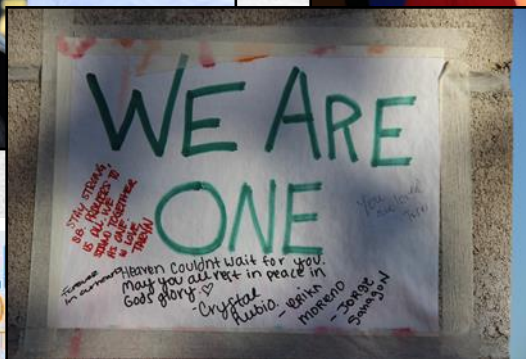 WE ARE
ONE
STAY STRONG,
IS ALL WE
STAND TOGETHER
AS ONE.
LOVE
You
Forever
in our hearts
Heaven couldnt wait for you.
May you all rest in peace in
Gods glory. ♡
-Crystal
Rubio.
-Erika
MORENO
-JORGE